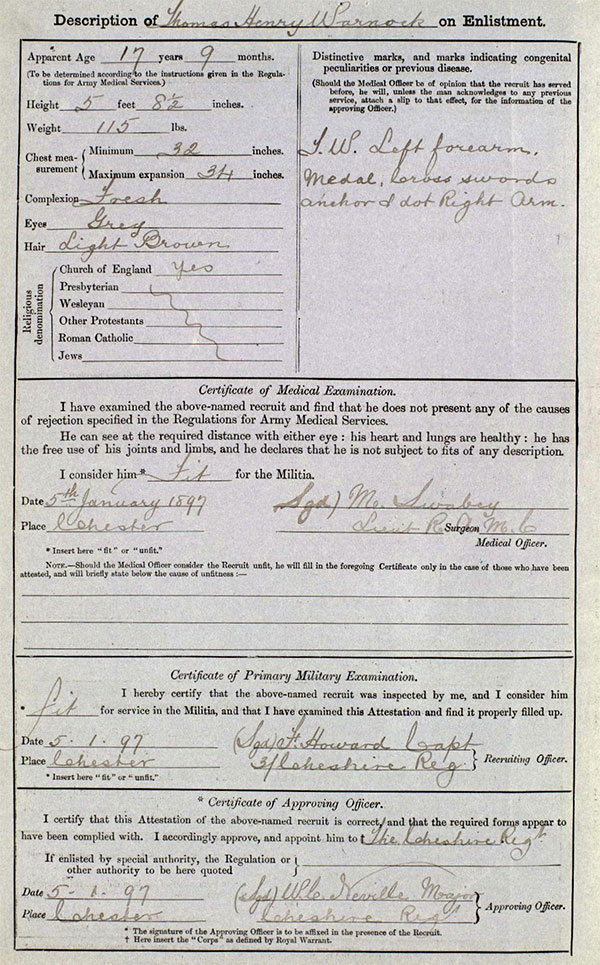 Description of Thomas Henry Warnock on Enlistment.
Apparent Age 17 years 9 months.
(To be determined according to the instructions given in the Regula-
tions for Army Medical Services.)
Height 5 feet 8½ inches.
Weight 115 lbs.
Chest mea-
surement
Minimum 32 inches.
Maximum expansion 34 inches.
Complexion Fresh
Eyes Grey
Hair Light Brown
Religious
denomination
Church of England Yes
Presbyterian
Wesleyan
Other Protestants
Roman Catholic
Jews
Distinctive marks, and marks indicating congenital
peculiarities or previous disease.
(Should the Medical Officer be of opinion that the recruit has served
before, he will, unless the man acknowledges to any previous
service, attach a slip to that effect, for the information of the
approving Officer.)
Left forearm.
Medal, Cross swords
anchor & dot Right Arm.
Certificate of Medical Examination.
I have examined the above-named recruit and find that he does not present any of the causes
of rejection specified in the Regulations for Army Medical Services.
He can see at the required distance with either eye : his heart and lungs are healthy : he has
the free use of his joints and limbs, and he declares that he is not subject to fits of any description.
I consider him* Fit for the Militia.
Date 5th January 1897
Place Chester
Sgd) Swabey
Surgeon
Medical Officer.
* Insert here "fit" or "unfit."
NOTE.—Should the Medical Officer consider the Recruit unfit, he will fill in the foregoing Certificate only in the case of those who have been
attested, and will briefly state below the cause of unfitness :—
Certificate of Primary Military Examination.
I hereby certify that the above-named recruit was inspected by me, and I consider him
* fit for service in the Militia, and that I have examined this Attestation and find it properly filled up.
Date 5.1.97
Place Chester
(Sgd) F. Howard Capt
3/Cheshire Reg.
Recruiting Officer.
* Insert here "fit" or "unfit."
* Certificate of Approving Officer.
I certify that this Attestation of the above-named recruit is correct, and that the required forms appear to
have been complied with. I accordingly approve, and appoint him to † The Cheshire Regt
If enlisted by special authority, the Regulation or
other authority to be here quoted
Date 5-1.97
Place Chester
(Sgd) W.C. Neville Major
Cheshire Regt
Approving Officer.
* The signature of the Approving Officer is to be affixed in the presence of the Recruit.
† Here insert the "Corps" as defined by Royal Warrant.